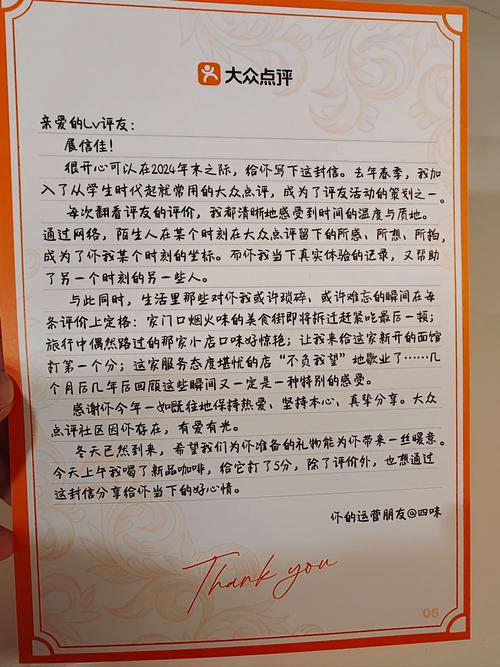 大众点评
亲爱的Lv评友：
展信佳！
很开心可以在2024年末之际，给你写下这封信。去年春季，我加
入了从学生时代起就常用的大众点评，成为了评友活动的策划之一。
每次翻看评友的评价，我都清晰地感受到时间的温度与质地。
通过网络，陌生人在某个时刻在大众点评留下的所感、所想、所拍，
成为了你我某个时刻的坐标。而你我当下真实体验的记录，又帮助
了另一个时刻的另一些人。
与此同时，生活里那些对你我或许琐碎、或许难忘的瞬间在每
条评价上定格：家门口烟火味的美食街即将拆迁赶紧吃最后一顿；
旅行中偶然路过的那家小店口味好惊艳；让我来给这家新开的面馆
打第一个分；这家服务态度堪忧的店“不负我望”地歇业了……几
个月后几年后回顾这些瞬间又一定是一种特别的感受。
感谢你今年一如既往地保持热爱、坚持本心、真挚分享。大众
点评社区因你存在，有爱有光。
冬天已然到来，希望我们为你准备的礼物能为你带来一丝暖意。
今天上午我喝了新品咖啡，给它打了5分，除了评价外，也想通过
这封信分享给你当下的好心情。
你的运营朋友@四味
Thank you
06